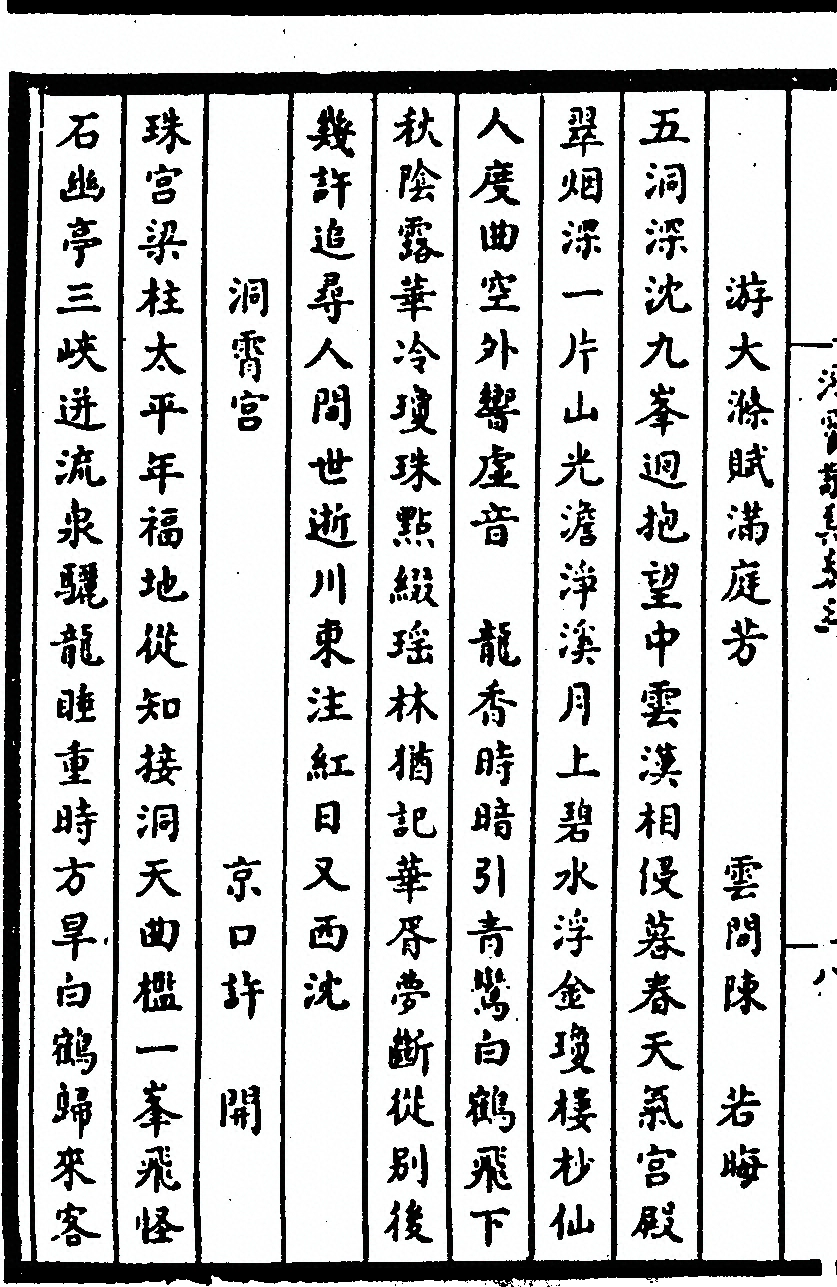 游大滌賦滿庭芳　雲間陳　若晦
五洞深沈九峯迴抱望中雲漢相侵暮春天氣宮殿
翠烟深一片山光澹淨溪月上碧水浮金瓊樓杪仙
人度曲空外響虛音　龍香時暗引青鸞白鶴飛下
秋陰露華冷瓊珠點綴瑶林猶記華胥夢斷從别後
幾許追尋人間世逝川東注紅日又西沈
洞霄宮　京口許　開
珠宮梁柱太平年福地從知接洞天曲檻一峯飛怪
石幽亭三峽迸流泉驪龍睡重時方旱白鶴歸來客